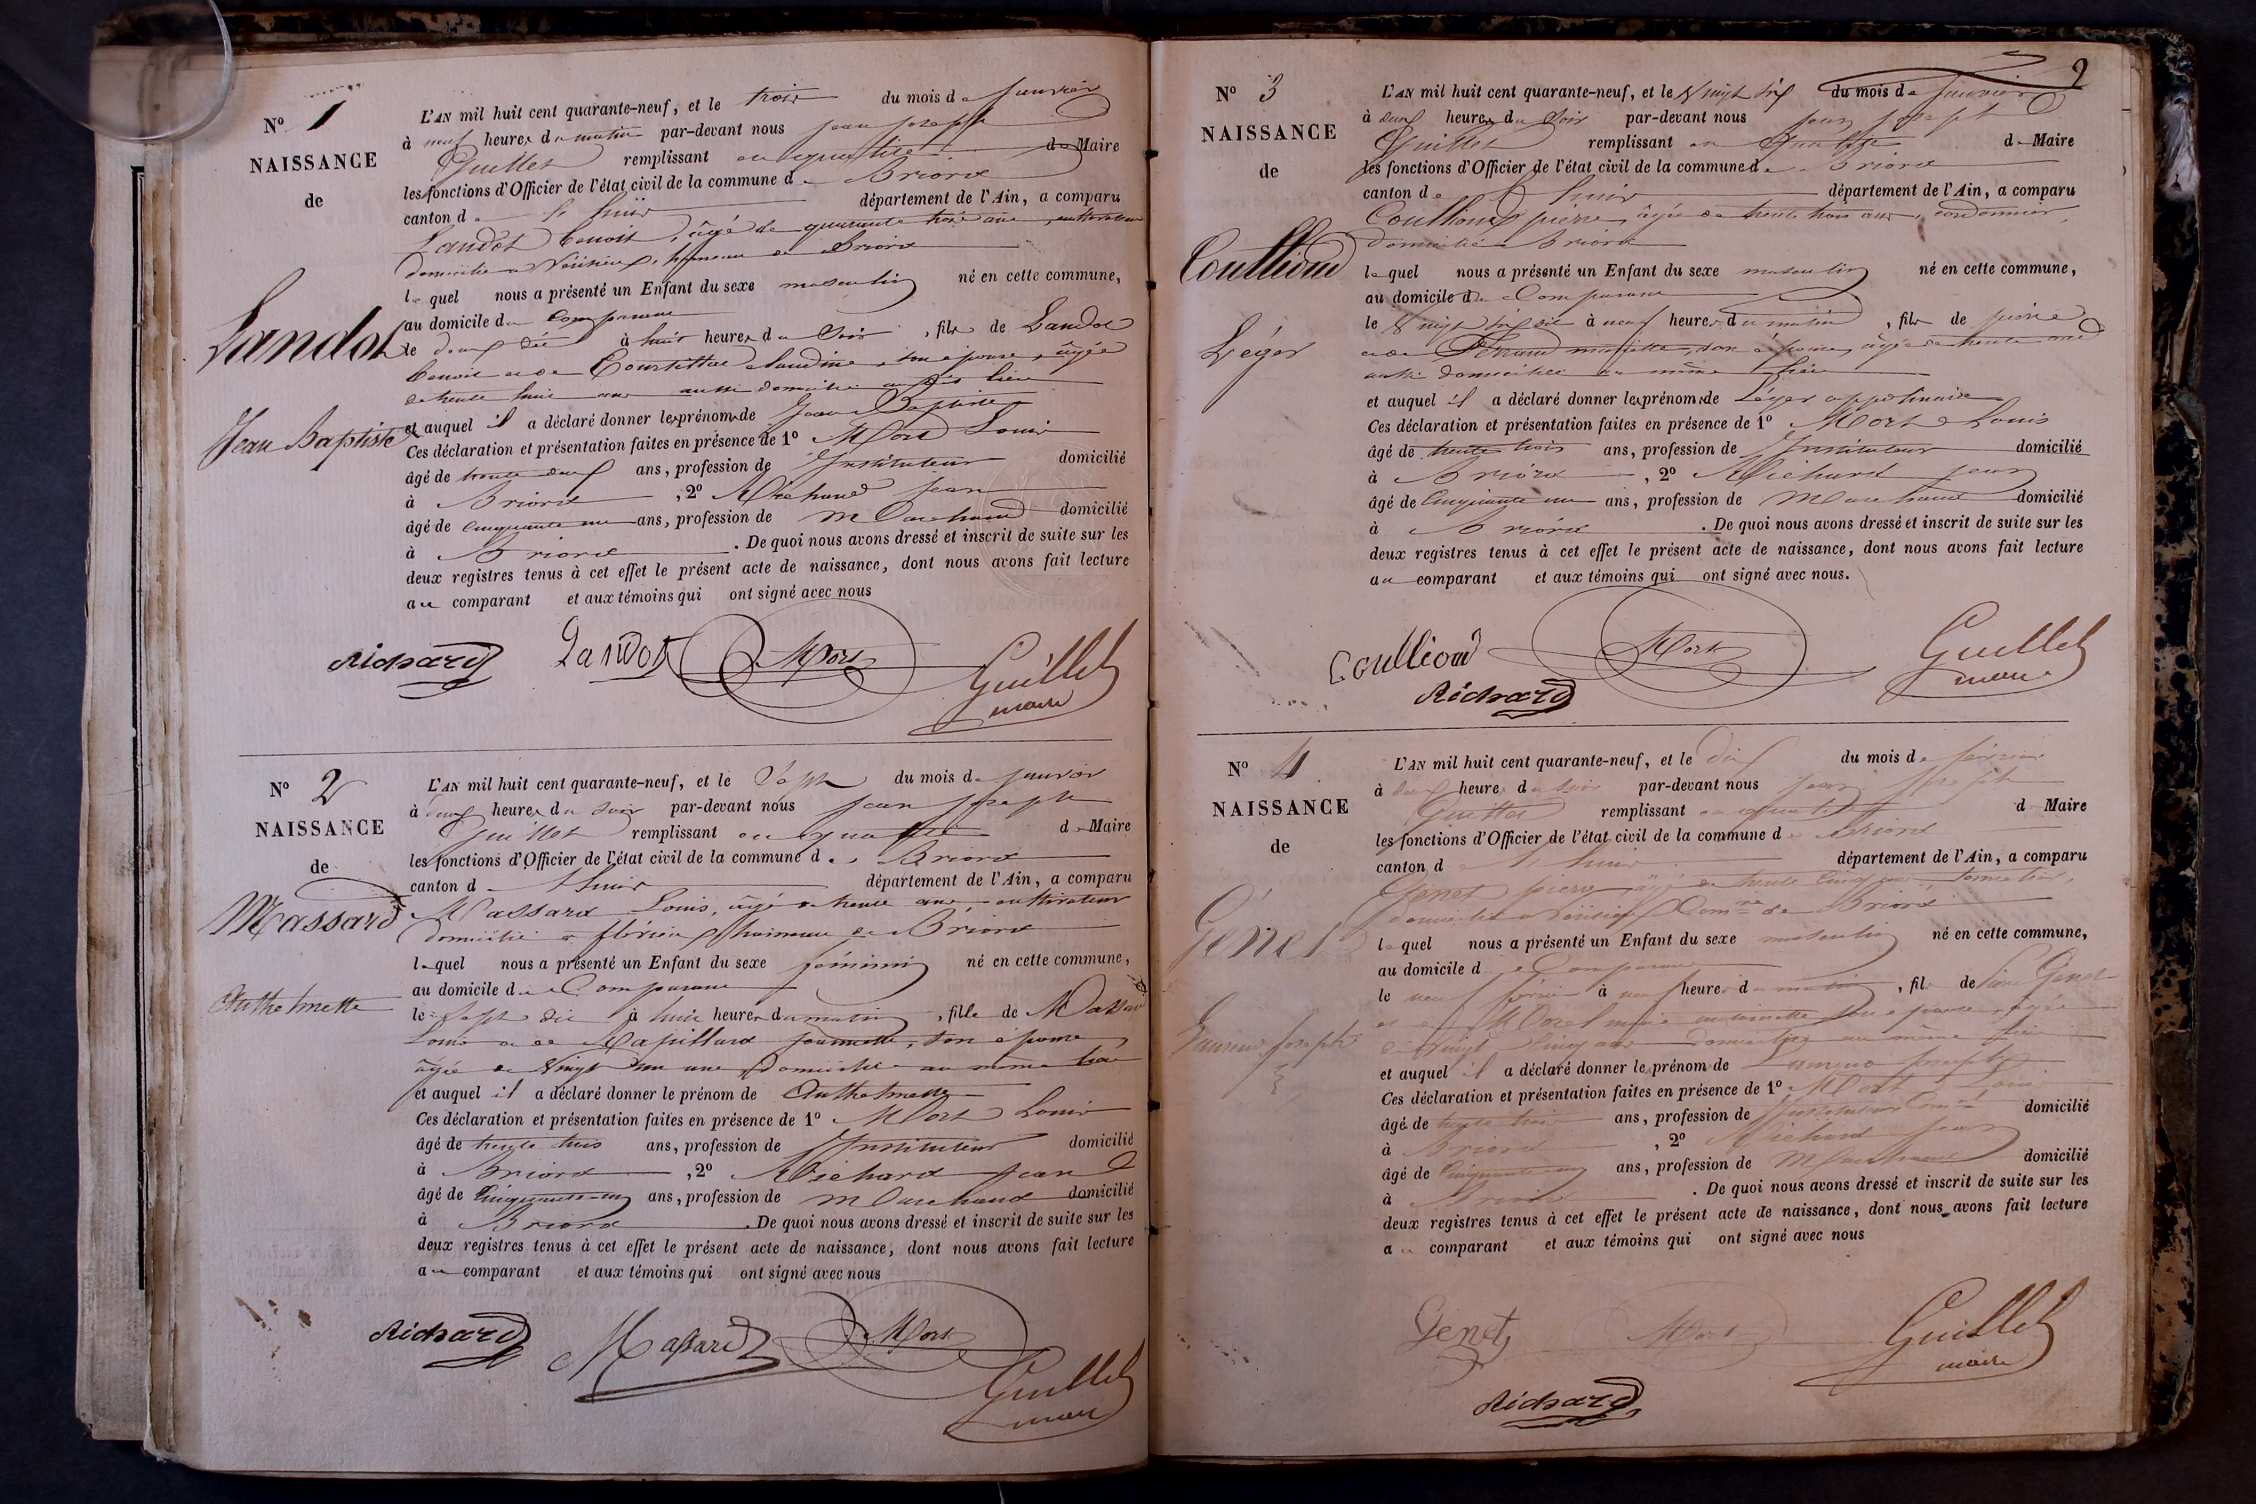 N° 1
NAISSANCE
de
Landot
Jean Baptiste
L'AN mil huit cent quarante-neuf, et le trois du mois de janvier
à neuf heures du matin par-devant nous jean joseph
Guillet remplissant en qualité de Maire
les fonctions d'Officier de l'état civil de la commune de Briord
canton de Lhuis département de l'Ain, a comparu
Landot benoit, âgé de quarante trois ans, cultivateur
domicilié à hameau de Briord
lequel nous a présenté un Enfant du sexe masculin né en cette commune,
au domicile du Comparant
le deux dit à huit heures du Soir, fils de Landot
benoit et de Claudine, son épouse, âgée
de trente huit ans aussi domicilié au dit lieu
et auquel il a déclaré donner les prénoms de Jean Baptiste
Ces déclaration et présentation faites en présence de 1° Mort Louis
âgé de trente deux ans, profession de Instituteur domicilié
à Briord, 2° Richard jean
âgé de Cinquante un ans, profession de Marchand domicilié
à Briord. De quoi nous avons dressé et inscrit de suite sur les
deux registres tenus à cet effet le présent acte de naissance, dont nous avons fait lecture
au comparant et aux témoins qui ont signé avec nous
Richard Landot Mort Guillet
maire
N° 2
NAISSANCE
de
Massard
Anthelmette
L'AN mil huit cent quarante-neuf, et le Sept du mois de janvier
à deux heures du soir par-devant nous jean joseph
Guillet remplissant en qualité de Maire
les fonctions d'Officier de l'état civil de la commune de Briord
canton de Lhuis département de l'Ain, a comparu
Massard Louis, âgé de trente ans cultivateur
domicilié à hameau de Briord
lequel nous a présenté un Enfant du sexe féminin né en cette commune,
au domicile du Comparant
le Sept dit à huit heures du matin, fille de Massard
Louis et de Mapillard son épouse
âgée de Vingt un ans domiciliée au même lieu
et auquel il a déclaré donner le prénom de Anthelmette
Ces déclaration et présentation faites en présence de 1° Mort Louis
âgé de trente trois ans, profession de Instituteur domicilié
à Briord, 2° Richard jean
âgé de Cinquante un ans, profession de Marchand domicilié
à Briord. De quoi nous avons dressé et inscrit de suite sur les
deux registres tenus à cet effet le présent acte de naissance, dont nous avons fait lecture
au comparant et aux témoins qui ont signé avec nous
Richard Massard Mort Guillet
maire
2
N° 3
NAISSANCE
de
Coullioud
Léger
L'AN mil huit cent quarante-neuf, et le Vingt six du mois de janvier
à deux heures du Soir par-devant nous jean joseph
Guillet remplissant en qualité de Maire
les fonctions d'Officier de l'état civil de la commune de Briord
canton de Lhuis département de l'Ain, a comparu
Coullioud pierre, âgé de trente trois ans, cordonnier,
domicilié à Briord
lequel nous a présenté un Enfant du sexe masculin né en cette commune,
au domicile du Comparant
le Vingt six dit à neuf heures du matin, fils de pierre
et de mariette, son épouse, âgée de trente ans
aussi domiciliée au même lieu
et auquel il a déclaré donner les prénoms de Léger appolinaire
Ces déclaration et présentation faites en présence de 1° Mort Louis
âgé de trente trois ans, profession de Instituteur domicilié
à Briord, 2° Richard jean
âgé de Cinquante un ans, profession de Marchand domicilié
à Briord. De quoi nous avons dressé et inscrit de suite sur les
deux registres tenus à cet effet le présent acte de naissance, dont nous avons fait lecture
au comparant et aux témoins qui ont signé avec nous.
Coulliou Mort Guillet
Richard maire
N° 4
NAISSANCE
de
Génet
joseph
L'AN mil huit cent quarante-neuf, et le dix du mois de février
à deux heures du soir par-devant nous jean joseph
Guillet remplissant en qualité de Maire
les fonctions d'Officier de l'état civil de la commune de Briord
canton de Lhuis département de l'Ain, a comparu
Genet pierre, âgé de trente cinq ans
domicilié à Comne de Briord
lequel nous a présenté un Enfant du sexe masculin né en cette commune,
au domicile du Comparant
le neuf février à neuf heures du matin, fils de pierre Genet
et de Morel marie son épouse, âgée
de vingt cinq ans domiciliée au même lieu
et auquel il a déclaré donner le prénom de joseph
Ces déclaration et présentation faites en présence de 1° Mort Louis
âgé de trente trois ans, profession de Instituteur domicilié
à Briord, 2° Richard jean
âgé de Cinquante un ans, profession de Marchand domicilié
à Briord. De quoi nous avons dressé et inscrit de suite sur les
deux registres tenus à cet effet le présent acte de naissance, dont nous avons fait lecture
au comparant et aux témoins qui ont signé avec nous
Genet Mort Guillet
maire
Richard